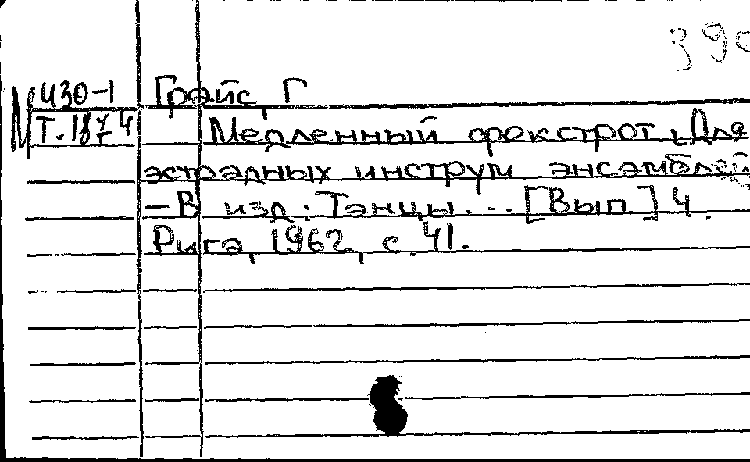 390
М 430-1 Грайс, Г
Т.1874 Медленный фокстрот. Для
эстрадных инструм ансамблей
— В изд: Танцы... [Вып] 4.
Рига, 1962, с. 41.